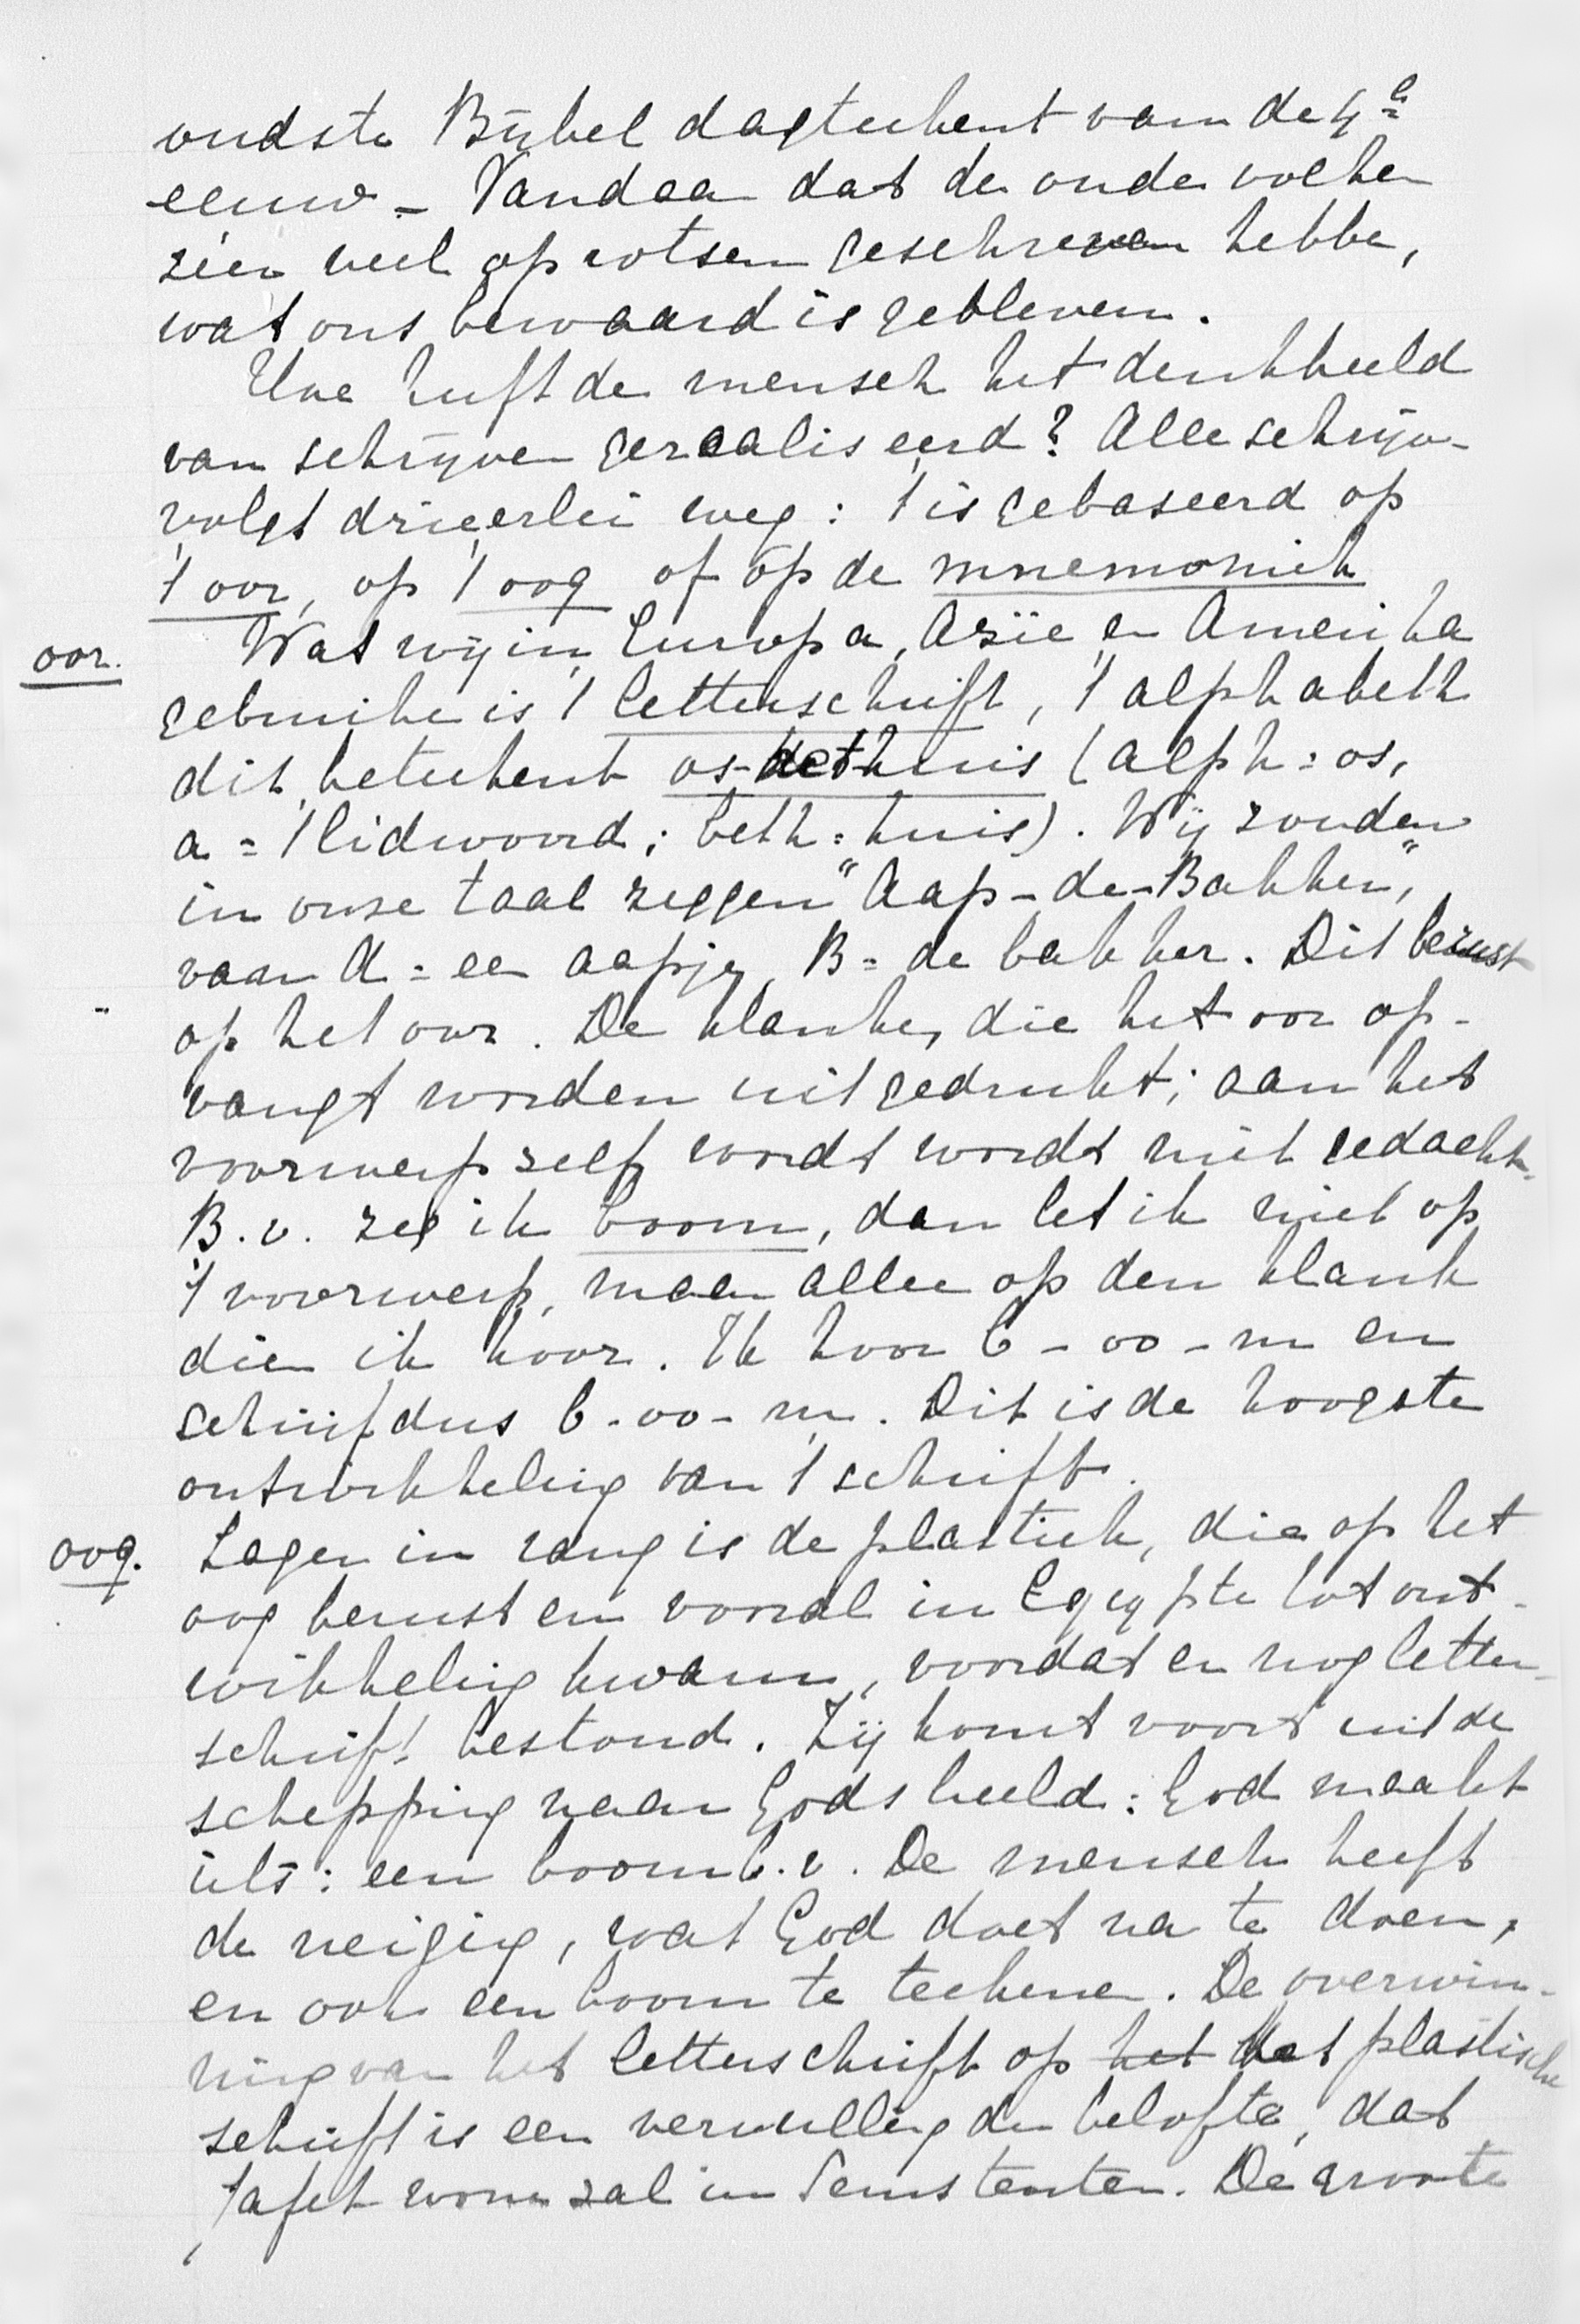 oudste Bijbel dagteekent van de 4e
eeuw - Vandaar dat de oude volken
zeer veel op rotsen geschreven hebbe,
wat ons bewaard is gebleven.
Hoe heeft de mensch het denkbeeld
van schrijven gerealiseerd? Alle schrijv-
volgt drieërlei weg: 't is gebaseerd op
't oor, op 't oog of op de mnemoniek
oor. Wat wij in Europa, Azië en Amerika
gebruike is 't letterschrift, 't alphabeth
dit beteekent os-het-huis (alph = os,
a = 't lidwoord; beth = huis). Wij zouden
in onze taal zeggen "Aap-de-Bakker",
van A = ee aapje, B = de bakker. Dit berust
op het oor. De klanke, die het oor op-
vangt worden uitgedrukt; aan het
voorwerp zelf wordt wordt niet gedacht.
B.v. zeg ik boom, dan let ik niet op
't voorwerp, maar allee op den klank
dien ik hoor. Ik hoor b - oo - m en
schrijf dus b - oo - m. Dit is de hoogste
ontwikkelig van 't schrift.
oog. Lager in rang is de plastiek, die op het
oog berust en vooral in Egypte tot ont-
wikkelig kwam, voordat er nog letter-
schrift bestond. Zij komt voort uit de
schepping naar Gods beeld: God maakt
iets: een boom b.v. De mensch heeft
de neigig, wat God doet na te doen,
en ook een boom te teekene. De overwin-
ning van het letterschrift op het het plastische
schrift is een vervullig der belofte, dat
Jafet wone zal in Sems tenten. De groote